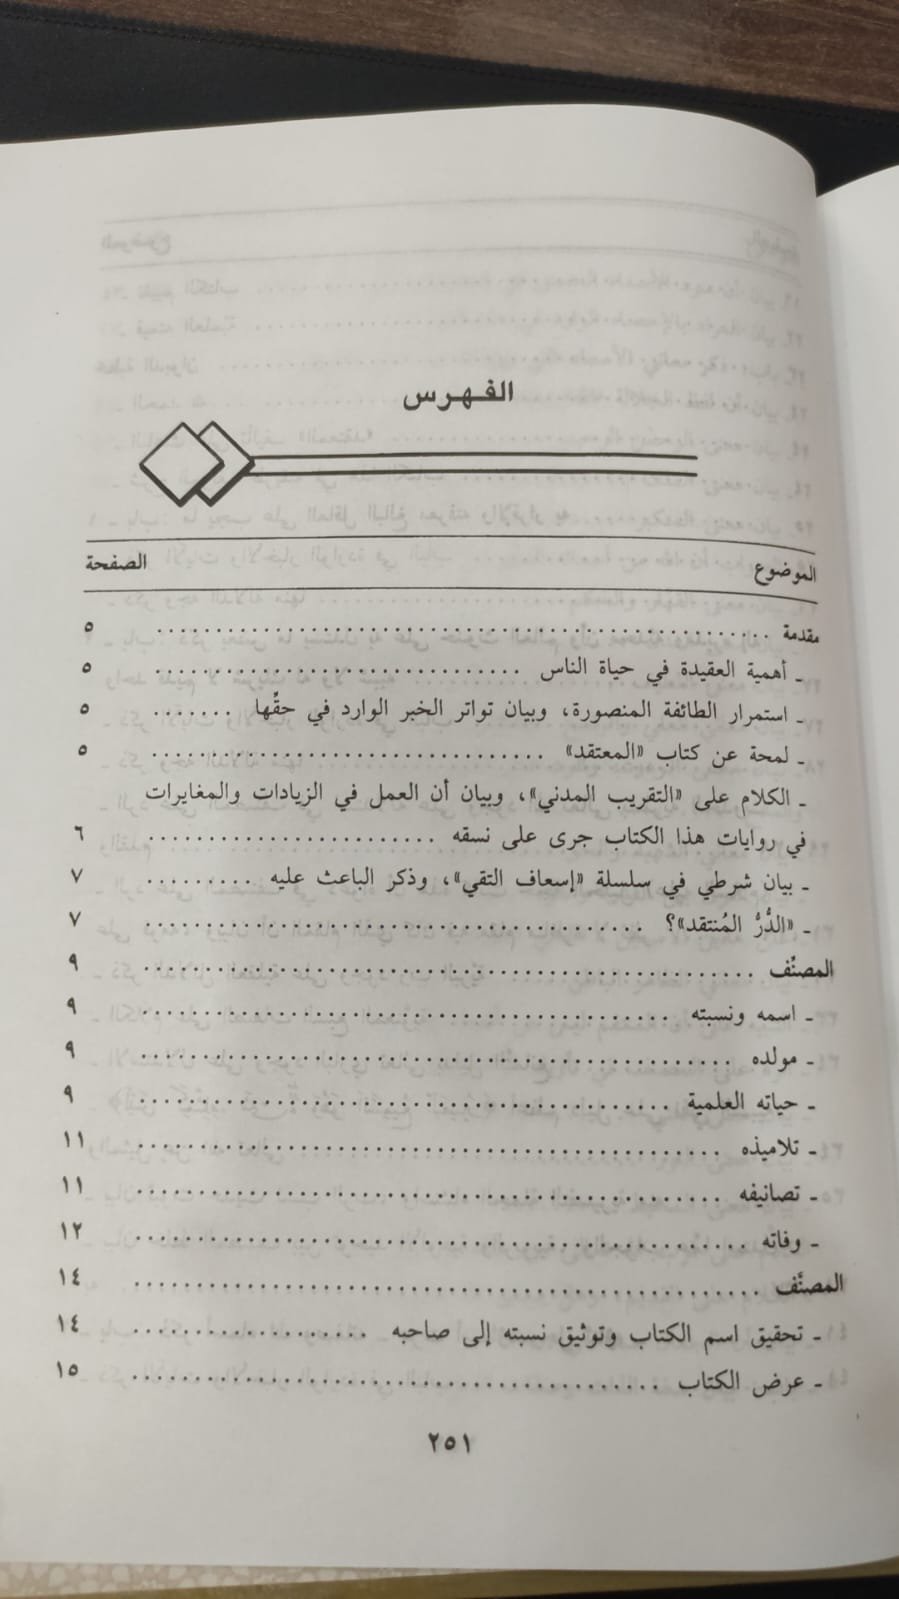 الفهرس
الموضوع الصفحة
مقدمة ................................................ ٥
ـ أهمية العقيدة في حياة الناس ................................ ٥
ـ استمرار الطائفة المنصورة، وبيان تواتر الخبر الوارد في حقِّها ....... ٥
ـ لمحة عن كتاب «المعتقد» .................................. ٥
ـ الكلام على «التقريب المدني»، وبيان أن العمل في الزيادات والمغايرات
في روايات هذا الكتاب جرى على نسقه ......................... ٦
ـ بيان شرطي في سلسلة «إسعاف التقي»، وذكر الباعث عليه ......... ٧
ـ «الدُّرُّ المُنتقد»؟ ......................................... ٧
المصنِّف ................................................ ٩
ـ اسمه ونسبته ............................................ ٩
ـ مولده ................................................ ٩
ـ حياته العلمية ........................................... ٩
ـ تلاميذه ............................................... ١١
ـ تصانيفه ............................................... ١١
ـ وفاته ................................................. ١٢
المصنَّف ................................................ ١٤
ـ تحقيق اسم الكتاب وتوثيق نسبته إلى صاحبه .................... ١٤
ـ عرض الكتاب ........................................... ١٥
٢٥١